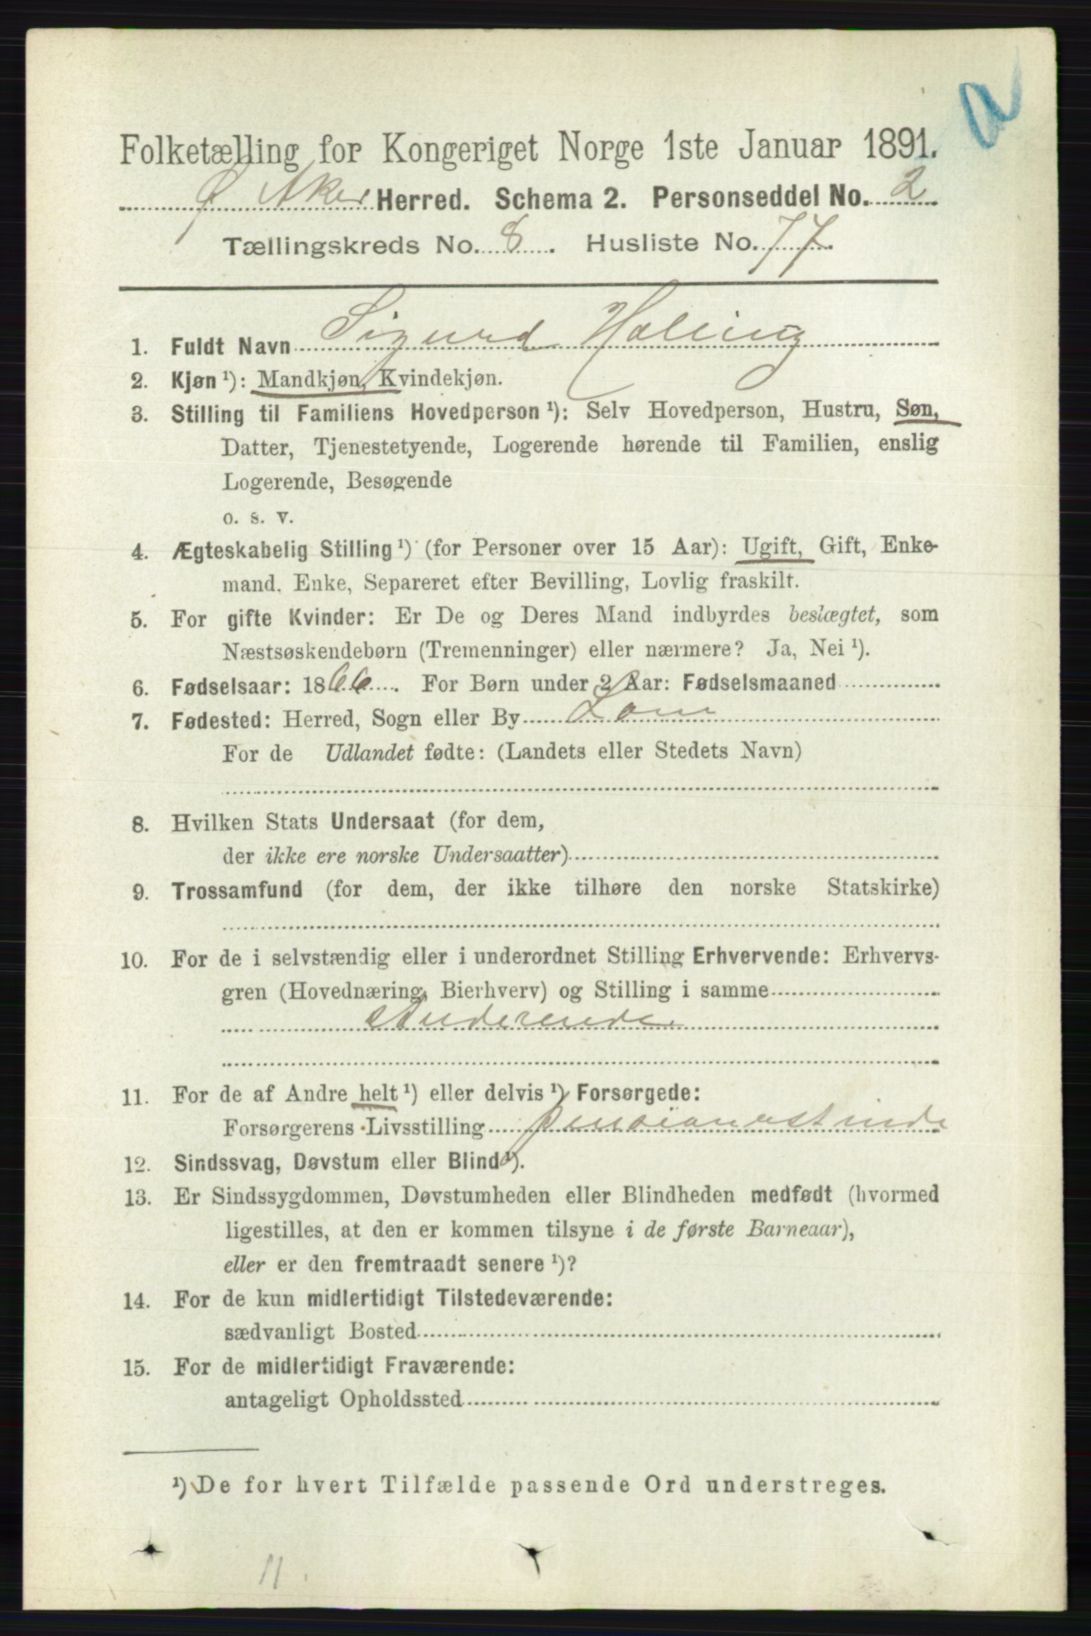 a
Folketælling for Kongeriget Norge 1ste Januar 1891.
Ø Aker Herred. Schema 2. Personseddel No. 2.
Tællingskreds No. 8. Husliste No. 77.
1. Fuldt Navn Sigurd
2. Kjøn ¹): Mandkjøn, Kvindekjøn.
3. Stilling til Familiens Hovedperson ¹): Selv Hovedperson, Hustru, Søn,
Datter, Tjenestetyende, Logerende hørende til Familien, enslig
Logerende, Besøgende
o. s. v.
4. Ægteskabelig Stilling ¹) (for Personer over 15 Aar): Ugift, Gift, Enke-
mand, Enke, Separeret efter Bevilling, Lovlig fraskilt.
5. For gifte Kvinder: Er De og Deres Mand indbyrdes beslægtet, som
Næstsøskendebørn (Tremenninger) eller nærmere? Ja, Nei ¹).
6. Fødselsaar: 1866. For Børn under 2 Aar: Fødselsmaaned
7. Fødested: Herred, Sogn eller By Lom
For de Udlandet fødte: (Landets eller Stedets Navn)
8. Hvilken Stats Undersaat (for dem,
der ikke ere norske Undersaatter)
9. Trossamfund (for dem, der ikke tilhøre den norske Statskirke)
10. For de i selvstændig eller i underordnet Stilling Erhvervende: Erhvervs-
gren (Hovednæring, Bierhverv) og Stilling i samme
studerende
11. For de af Andre helt ¹) eller delvis ¹) Forsørgede:
Forsørgerens Livsstilling pensionastinde
12. Sindssvag, Døvstum eller Blind ¹).
13. Er Sindssygdommen, Døvstumheden eller Blindheden medfødt (hvormed
ligestilles, at den er kommen tilsyne i de første Barneaar),
eller er den fremtraadt senere ¹)?
14. For de kun midlertidigt Tilstedeværende:
sædvanligt Bosted
15. For de midlertidigt Fraværende:
antageligt Opholdssted
¹) De for hvert Tilfælde passende Ord understreges.
11